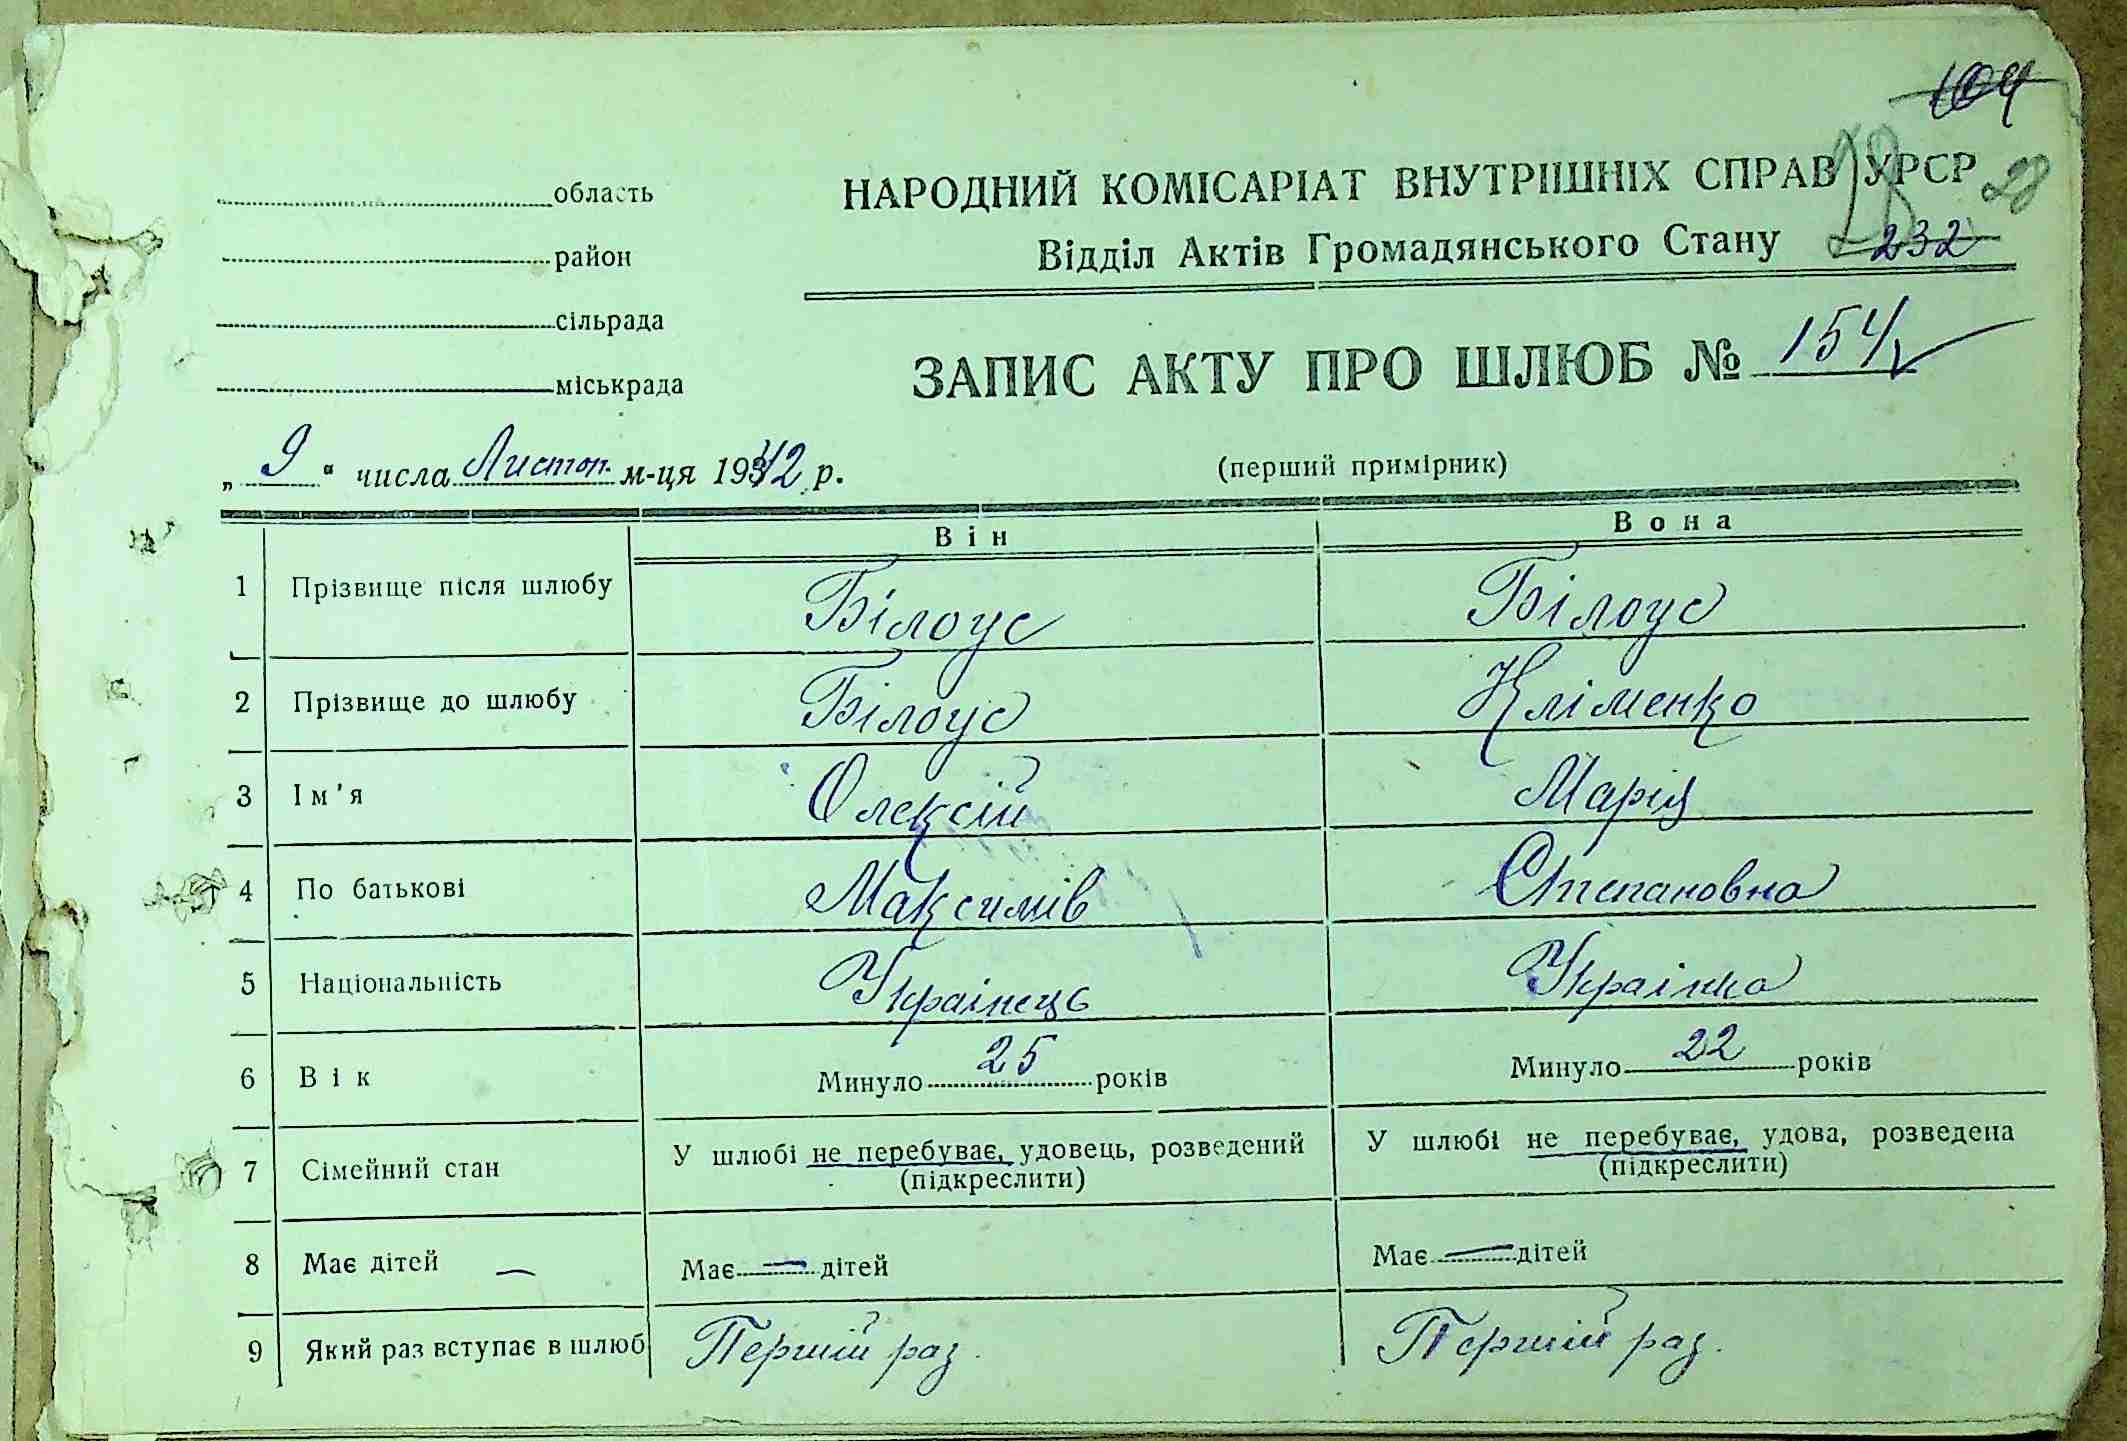 104
НАРОДНИЙ КОМІСАРІАТ ВНУТРІШНІХ СПРАВ УРСР
28
28
Відділ Актів Громадянського Стану
232
область
район
сільрада
міськрада
ЗАПИС АКТУ ПРО ШЛЮБ № 154
„ 9 “ числа Листоп. м-ця 1942 р.
(перший примірник)
Він Вона
1 Прізвище після шлюбу Білоус Білоус
2 Прізвище до шлюбу Білоус Кліменко
3 Ім'я Олексій Марія
4 По батькові Максимів Степановна
5 Національність Українець Українка
6 Вік Минуло 25 років Минуло 22 років
7 Сімейний стан У шлюбі не перебуває, удовець, розведений У шлюбі не перебуває, удова, розведена
(підкреслити) (підкреслити)
8 Має дітей — Має — дітей Має — дітей
9 Який раз вступає в шлюб Перший раз. Перший раз.